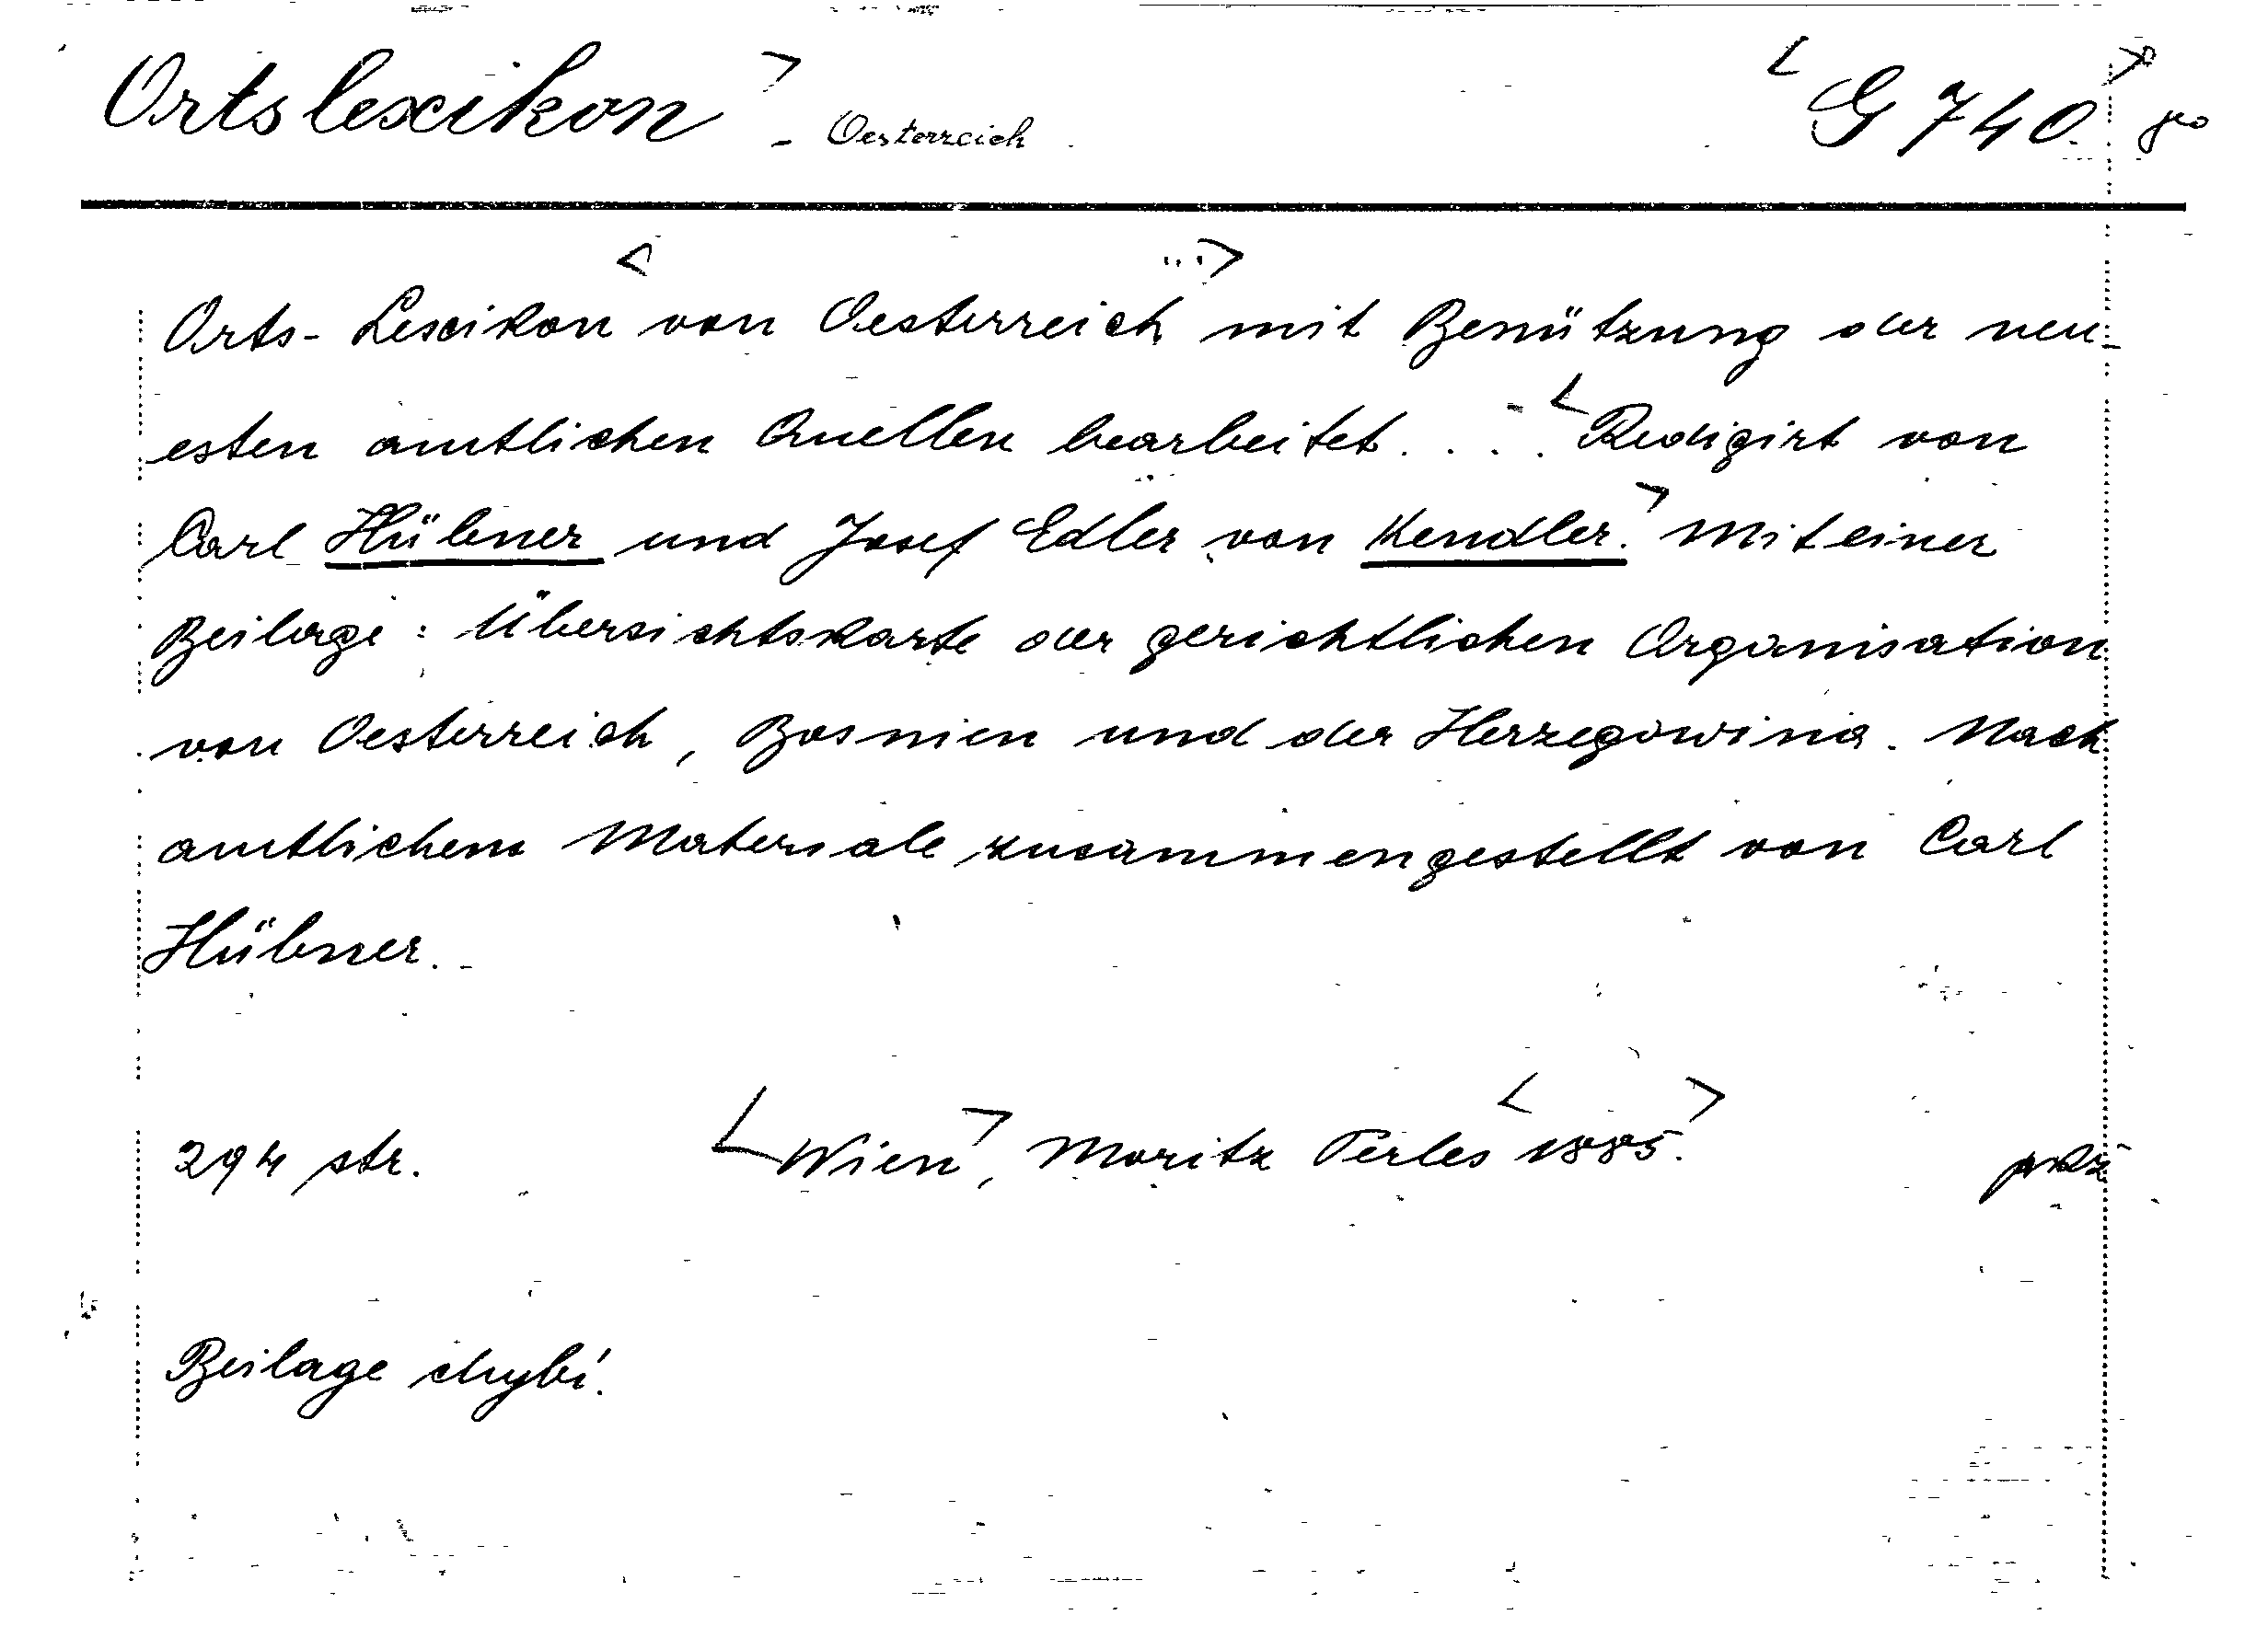 Ortslexikon - Oesterreich G 740
Orts-Lexikon von Oesterreich mit Benützung der neu-
esten amtlichen Quellen bearbeitet.... Redigirt von
Carl Hübner und Josef Edler von Kendler. Mit einer
Beilage: Übersichtskarte der gerichtlichen Organisation
von Oesterreich, Bosnien und der Herzegowina. Nach
amtlichem Materiale zusammengestellt von Carl
Hübner.
294 str. Wien, Moritz Perles 1885.
Beilage chybí.